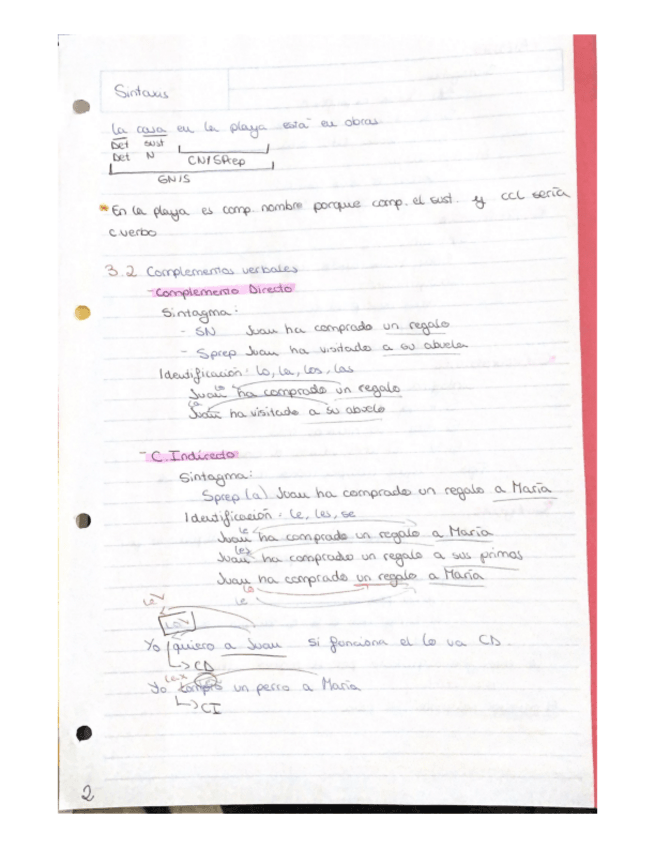 Sintaxis
La casa en la playa está en obras
Det sust
Det N CN/SPrep
GN/S
* En la playa es comp. nombre porque comp. el sust. y CCL sería
c.verbo
3.2 Complementos verbales
- Complemento Directo
Sintagma:
- SN Juan ha comprado un regalo
- Sprep Juan ha visitado a su abuela
Identificación: Lo, La, Los, Las
Lo
Juan ha comprado un regalo
La
Juan ha visitado a su abuelo
- C. Indirecto
Sintagma:
Sprep (a) Juan ha comprado un regalo a María
Identificación: Le, Les, se
Le
Juan ha comprado un regalo a María
Les
Juan ha comprado un regalo a sus primos
Juan ha comprado un regalo a María
Lo
Le
Le V
Lo V
Yo quiero a Juan Si funciona el lo va CD.
CD
La X
Yo compro un perro a María
CI
2